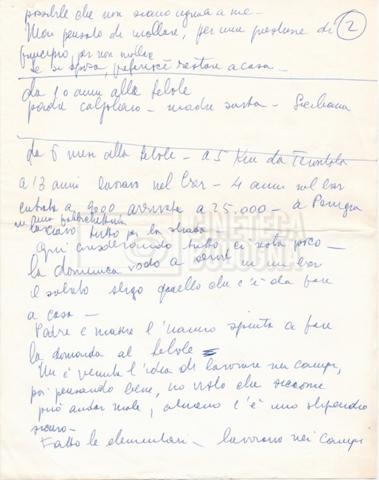 possibile che non siano uguali a me –
2
Mai pensato di mollare, per una questione di
principio, per non mollare
Se si sposa, preferisce restare a casa –
Da 10 anni alla Febole
padre calzolaio – madre sarta – Siciliana
Da 6 mesi alla Febole – a 5 Km da Terontola
a 13 anni lavoro nel bar – 4 anni nel bar
entrata a 9000 arrivata a 25.000 – a Perugia
lasciavo tutto per la strada
Qui considerando tutto, ci resta poco –
la domenica vado a servire in un bar
il sabato sbrigo quello che c'è da fare
a casa –
Padre e madre l'hanno spinta a fare
la domanda al Febole
Mi è venuta l'idea di lavorare nei campi,
poi pensando bene, ho visto che siccome
può andar male, almeno c'è uno stipendio
sicuro –
Fatto le elementari – lavorano nei campi
CINETECA
BOLOGNA